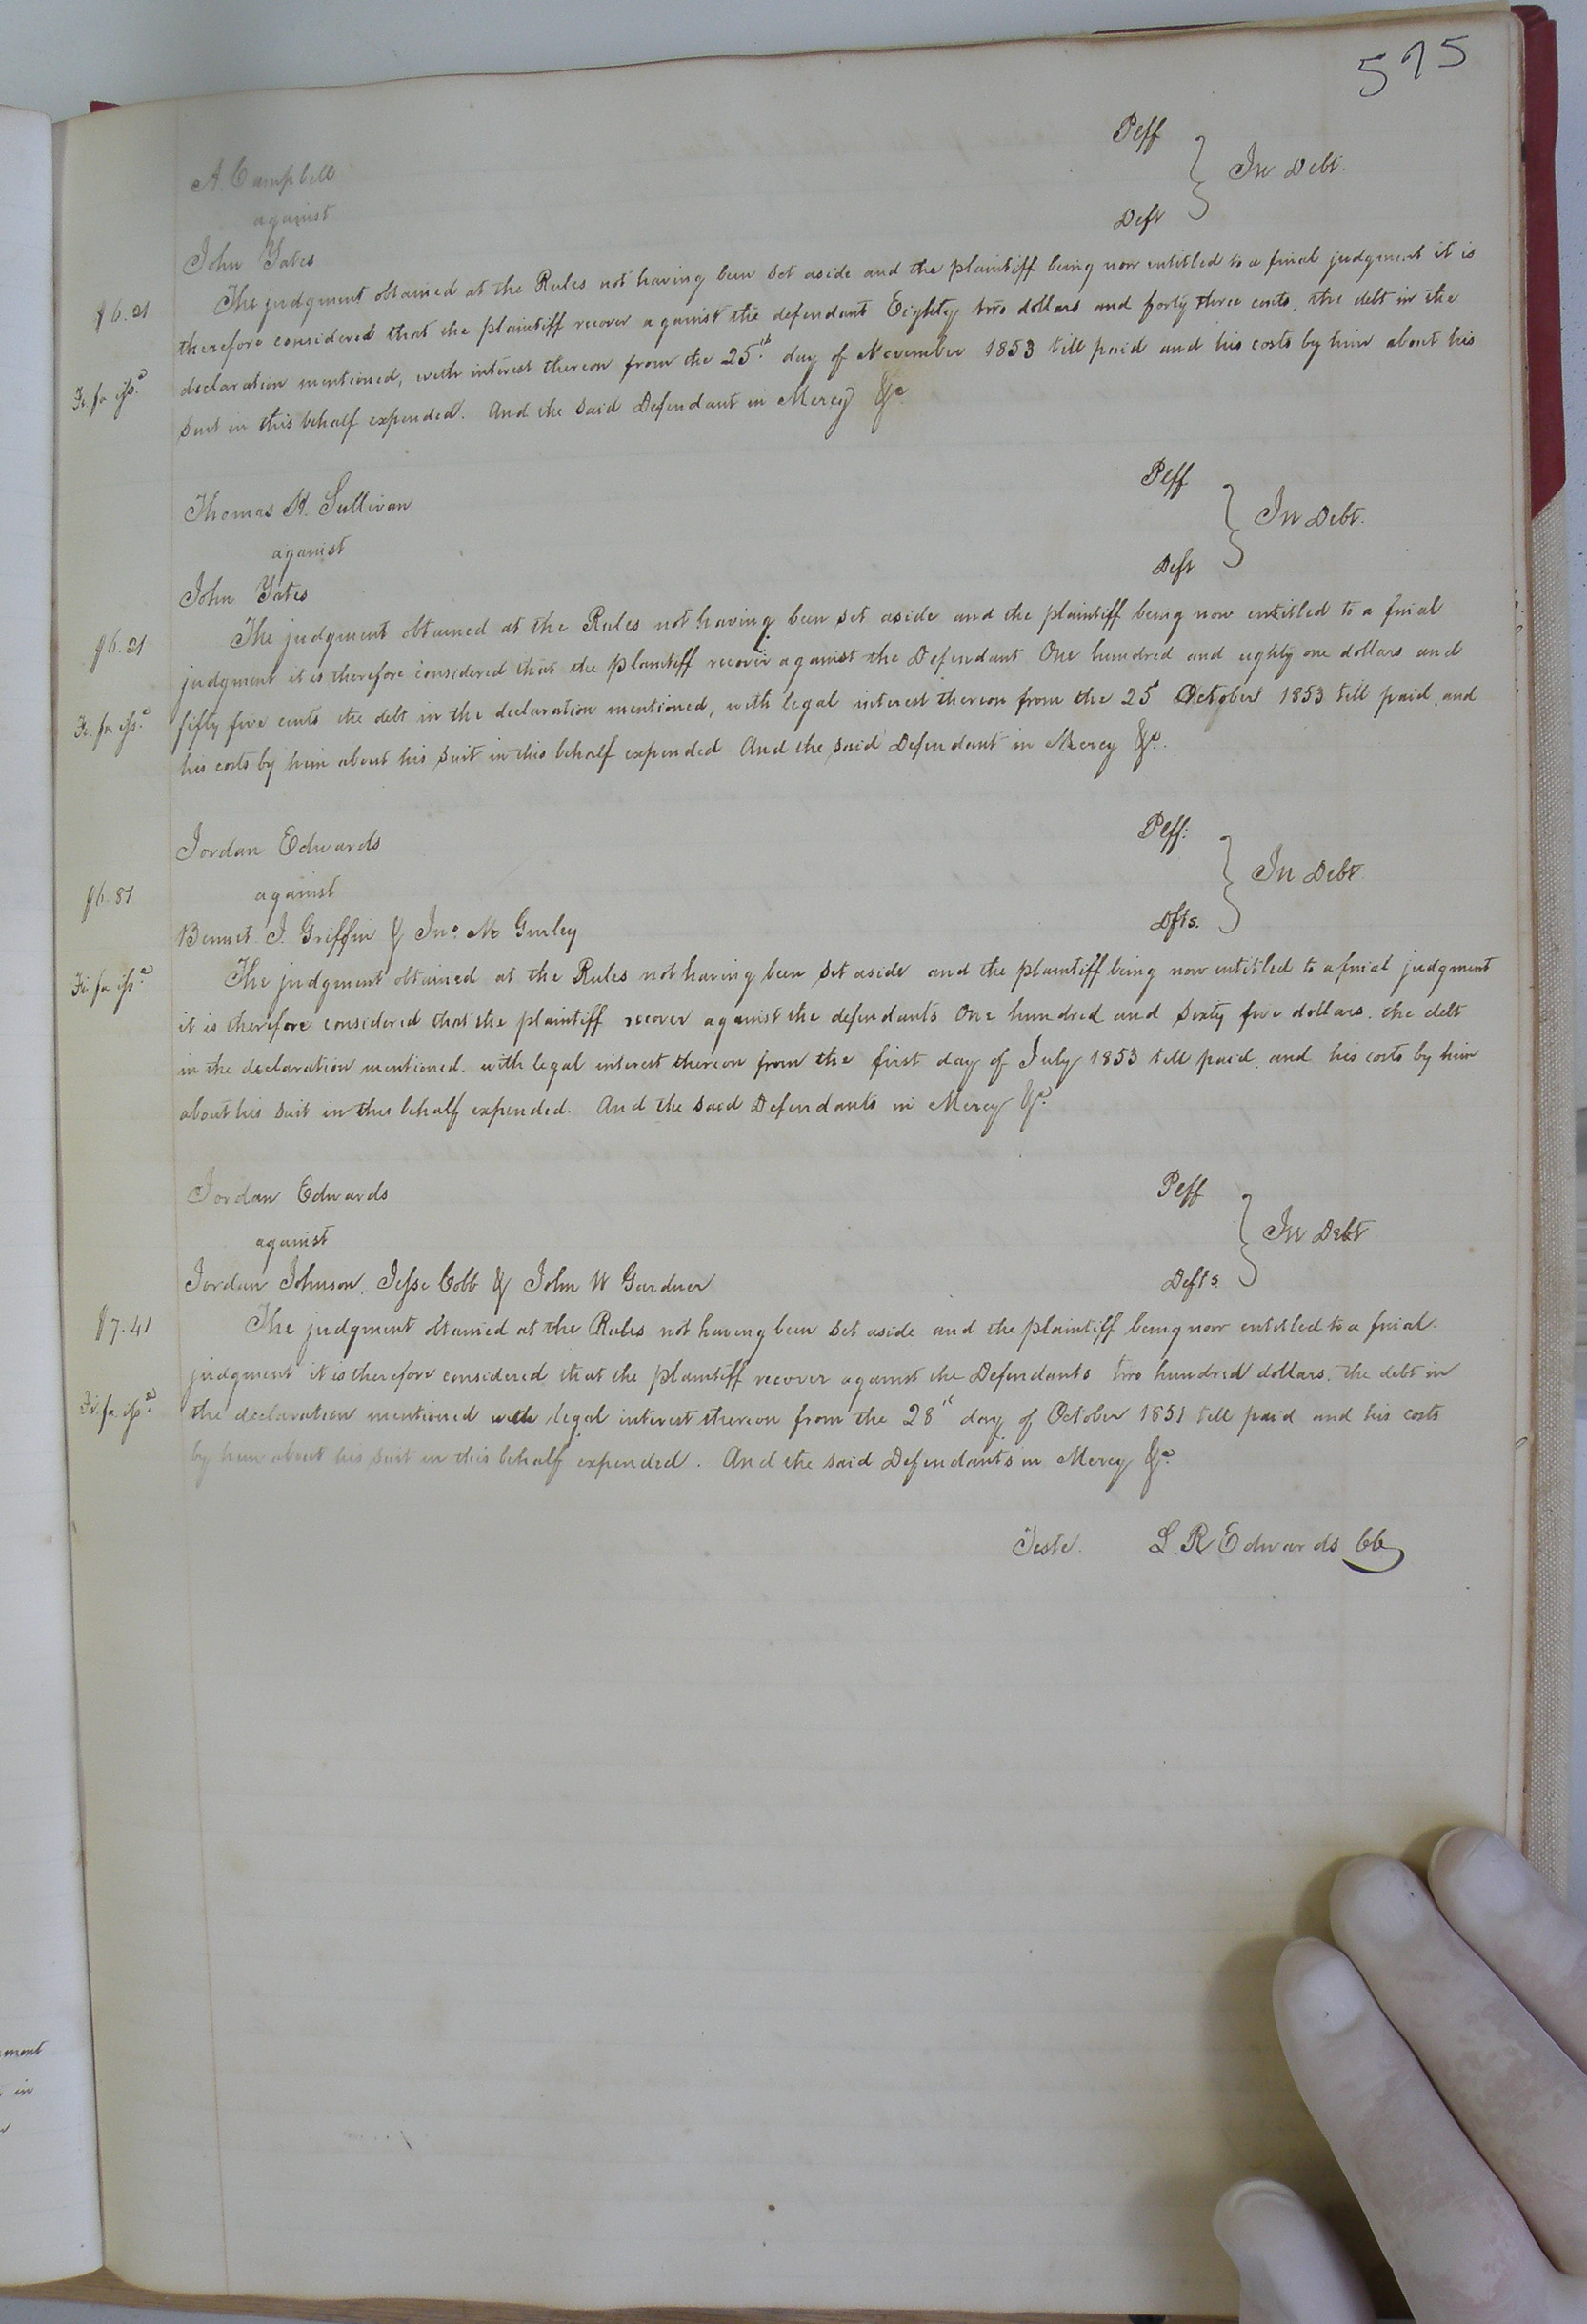 575
A. Campbell Plff
against } In Debt.
John Yates Deft
$6.21 The judgment obtained at the Rules not having been set aside and the plaintiff being now entitled to a final judgment it is
therefore considered that the plaintiff recover against the defendant Eighty two dollars and forty three cents, the debt in the
Fi. fa issd. declaration mentioned, with interest thereon from the 25th day of November 1853 till paid and his costs by him about his
suit in this behalf expended. And the said Defendant in Mercy &c
Thomas H. Sullivan Plff
against } In Debt.
John Yates Deft
$6.21 The judgment obtained at the Rules not having been set aside and the plaintiff being now entitled to a final
judgment it is therefore considered that the plaintiff recover against the Defendant One hundred and eighty one dollars and
Fi. fa issd. fifty five cents the debt in the declaration mentioned, with legal interest thereon from the 25th October 1853 till paid, and
his costs by him about his suit in this behalf expended. And the said Defendant in Mercy &c.
Jordan Edwards Plff:
$6.81 against } In Debt
Bennet J. Griffin & Jno. M Gurley Dfts.
Fi. fa issd. The judgment obtained at the Rules not having been set aside and the plaintiff being now entitled to a final judgment
it is therefore considered that the plaintiff recover against the defendants One hundred and sixty five dollars. the debt
in the declaration mentioned. with legal interest thereon from the first day of July 1853 till paid. and his costs by him
about his suit in this behalf expended. And the said Defendants in Mercy &c.
Jordan Edwards Plff
against } In Debt
Jordan Johnson, Jesse Cobb & John W Gardner Defts.
$7.41 The judgment obtained at the Rules not having been set aside and the plaintiff being now entitled to a final
judgment it is therefore considered that the plaintiff recover against the Defendants two hundred dollars. the debt in
Fi. fa. issd. the declaration mentioned with legal interest thereon from the 28th day of October 1851 till paid and his costs
by him about his suit in this behalf expended. And the said Defendants in Mercy &c.
Teste. L. R. Edwards CC
ment
in